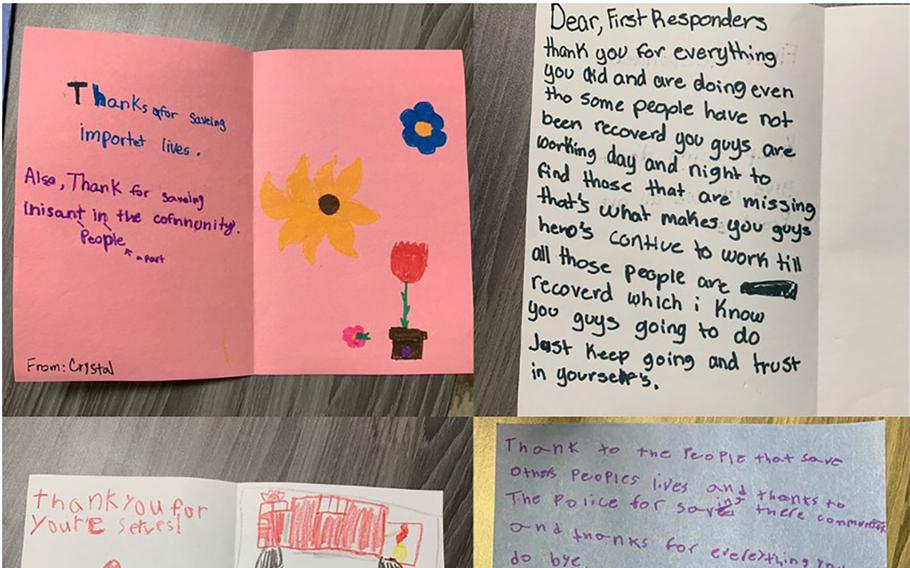 Thanks for saveing
importet lives.
Also, Thank for saveing
inisant in the comnunity.
People
a part
From: Crystal
Dear, First Responders
thank you for everything
you did and are doing even
tho some people have not
been recoverd you guys are
working day and night to
find those that are missing
that's what makes you guys
hero's contive to work till
all those people are
recoverd which i know
you guys going to do
Just keep going and trust
in yourselfs.
thank you for
youre serves!
Thank to the people that save
others peoples lives and thanks to
The police for saving there
and thanks for everything you
do bye